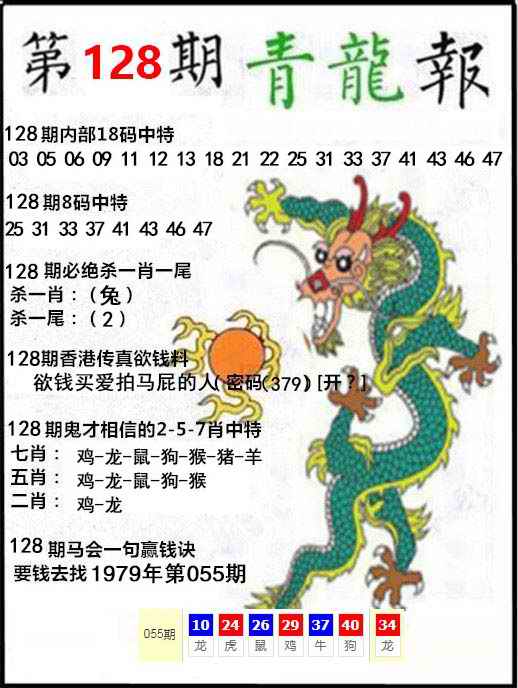 第128期青龍報
128期内部18码中特
03 05 06 09 11 12 13 18 21 22 25 31 33 37 41 43 46 47
128期8码中特
25 31 33 37 41 43 46 47
128期必绝杀一肖一尾
杀一肖：（兔）
杀一尾：（2）
128期香港传真欲钱料
欲钱买爱拍马屁的人（密码(379）[开？]
128期鬼才相信的2-5-7肖中特
七肖： 鸡-龙-鼠-狗-猴-猪-羊
五肖： 鸡-龙-鼠-狗-猴
二肖： 鸡-龙
128期马会一句赢钱诀
要钱去找1979年第055期
055期 10 24 26 29 37 40 34
龙 虎 鼠 鸡 牛 狗 龙